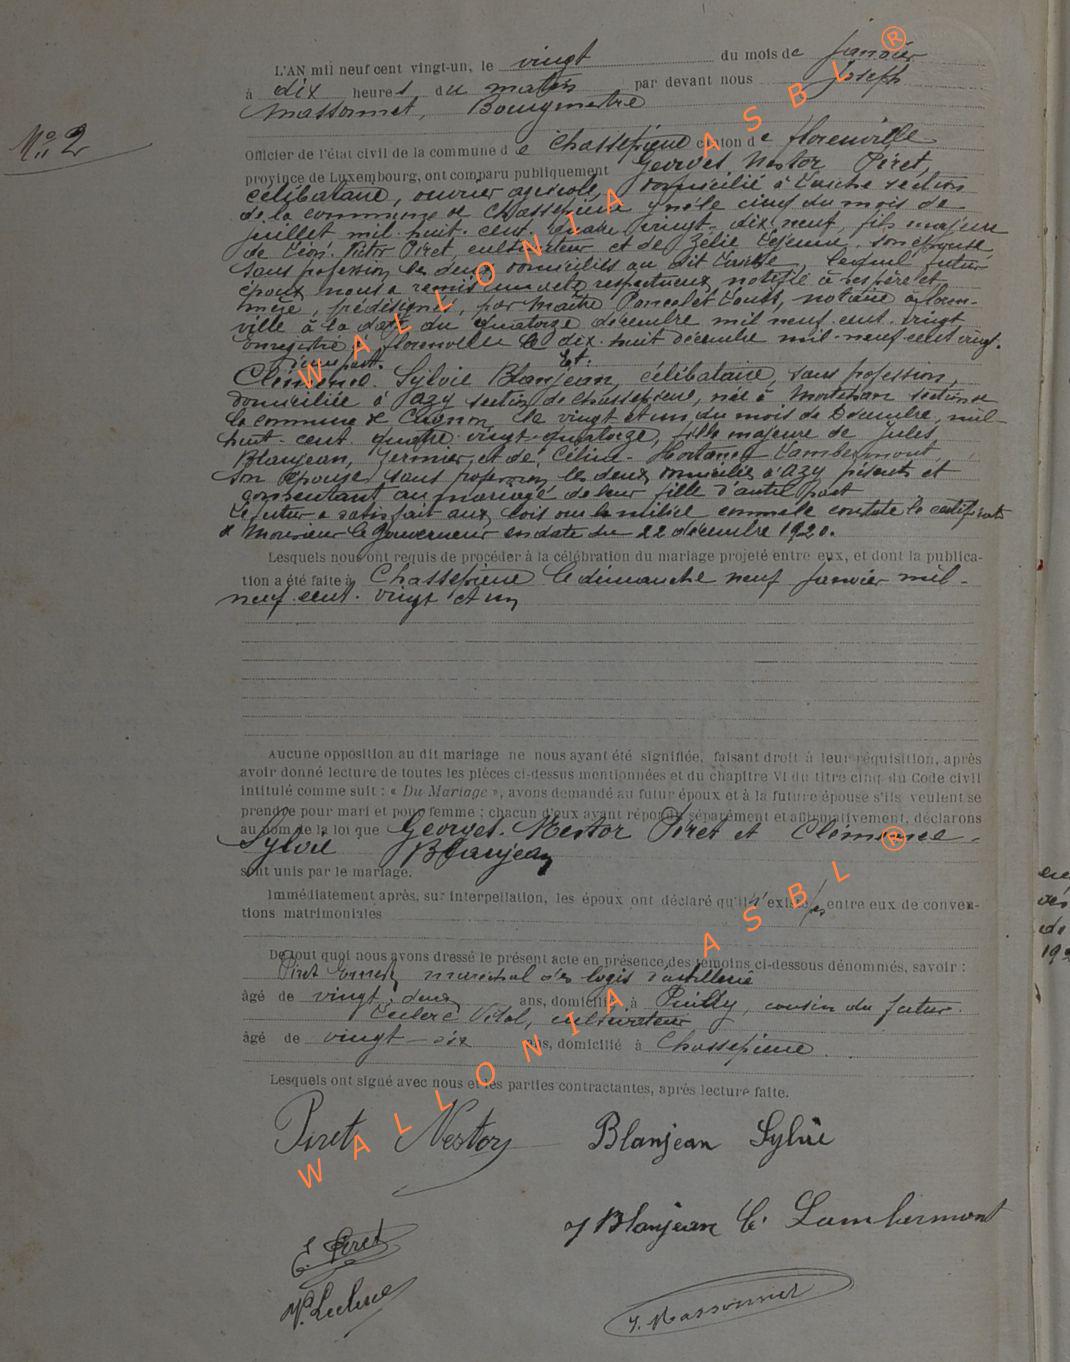 L'AN mil neuf cent vingt-un, le vingt du mois de Janvier
à dix heures du matin par devant nous Joseph
Massonnet, Bourgmestre
N° 2
Officier de l'état civil de la commune de Chassepierre canton de Florenville
province de Luxembourg, ont comparu publiquement Georges Nestor Piret,
célibataire, ouvrier agricole, domicilié à section
de la commune de Chassepierre y né le cinq du mois de
Juillet mil huit-cent quatre vingt-dix neuf, fils majeur
de Léon Victor Piret, cultivateur et de Zélie Lejeune son épouse
sans profession les deux domiciliés au dit lequel futur
époux nous a remis un acte respectueux notifié à ses père et
mère, prédésignés, par Maître Poncelet notaire à Floren-
ville à la date du quatorze décembre mil neuf cent vingt
enregistré à Florenville le dix-huit décembre mil-neuf cent vingt.
d'une part. Et:
Clémence Sylvie Blanjean, célibataire, sans profession,
domiciliée à Azy section de Chassepierre, née à Mortehan section de
la commune de Cugnon, le vingt et un du mois de Décembre, mil-
huit-cent quatre-vingt-quatorze, fille majeure de Jules
Blanjean, fermier, et de Céline-Hortance Lambermont,
son épouse sans profession les deux domiciliés à Azy présents et
consentant au mariage de leur fille d'autre part
Le futur a satisfait aux lois sur la milice comme le constate le certificat
de Monsieur le Gouverneur en date du 22 décembre 1920.
Lesquels nous ont requis de procéder à la célébration du mariage projeté entre eux, et dont la publica-
tion a été faite à Chassepierre le dimanche neuf Janvier mil-
neuf cent-vingt et un
Aucune opposition au dit mariage ne nous ayant été signifiée, faisant droit à leur réquisition, après
avoir donné lecture de toutes les pièces ci-dessus mentionnées et du chapitre VI du titre cinq du Code civil
intitulé comme suit : « Du Mariage », avons demandé au futur époux et à la future épouse s'ils veulent se
prendre pour mari et pour femme ; chacun d'eux ayant répondu séparément et affirmativement, déclarons
au nom de la loi que Georges-Nestor Piret et Clémence-
Sylvie Blanjean
sont unis par le mariage.
Immédiatement après, sur interpellation, les époux ont déclaré qu'il n'existe pas entre eux de conven-
tions matrimoniales
De tout quoi nous avons dressé le présent acte en présence des témoins ci-dessous dénommés, savoir :
Piret Ernest, maréchal des logis d'artillerie
âgé de vingt-deux ans, domicilié à Puilly, cousin du futur.
Leclerc Vital, cultivateur
âgé de vingt-six ans, domicilié à Chassepierre.
Lesquels ont signé avec nous et les parties contractantes, après lecture faite.
Piret Nestor Blanjean Sylvie
J Blanjean C. Lambermont
E. Piret
V. Leclerc
J. Massonnet
WALLONIA ASBL ®
WALLONIA ASBL ®